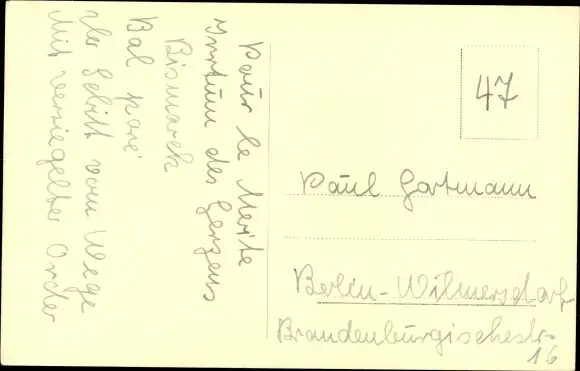 Pour le Merite
Irrtum des Herzens
Bismarck
Bal paré
Der Schritt vom Wege
Mit versiegelter Order
47
Paul Gartmann
Berlin-Wilmersdorf
Brandenburgischestr.
16